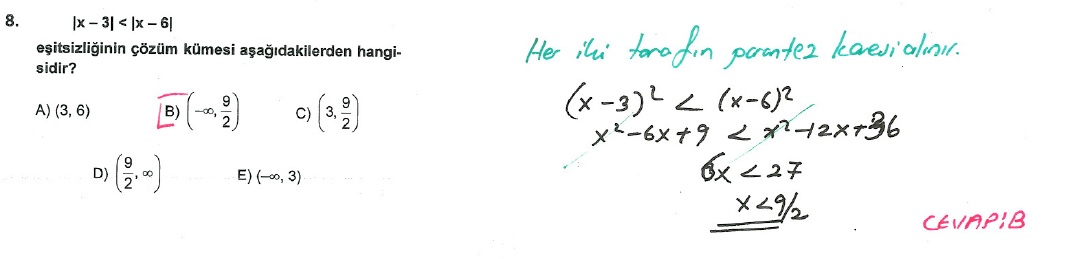 8. |x – 3| < |x – 6|
eşitsizliğinin çözüm kümesi aşağıdakilerden hangi-
sidir?
A) (3, 6) B) (–∞, 9/2) C) (3, 9/2)
D) (9/2, ∞) E) (–∞, 3)
Her iki tarafın parantez karesi alınır.
(x-3)² < (x-6)²
x²-6x+9 < x²-12x+36
6x < 27
x < 9/2
CEVAP:B